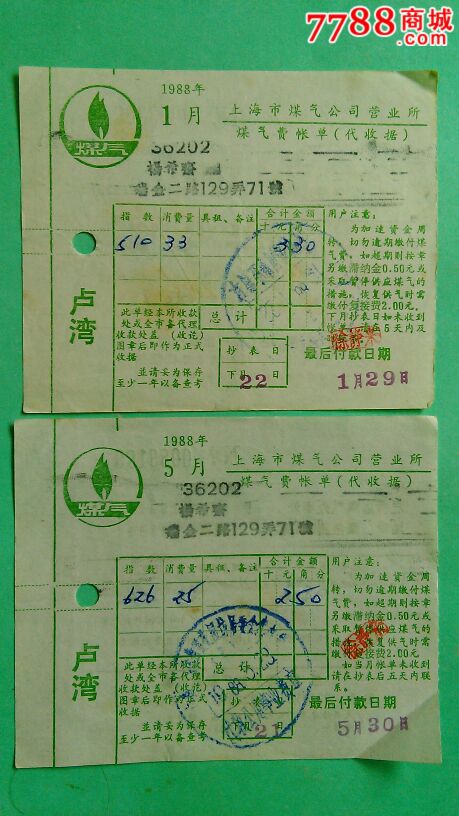 7788商城
7788.com 中国
1988年
1月
上海市煤气公司营业所
煤气费帐单(代收据)
煤气
36202
瑞金二路129弄71號
卢湾
指数 消费量 具租、备注 合计金额
十元角分
510 33 330
总计
此单经本所收款
处或全市备代理
收款处盖(收讫)
图章后即作为正式
收据
並请妥为保存
至少一年以备查考
抄表日
下月22日
用户注意:
为加速资金周
转,切勿逾期缴付煤
气费,如超期则按章
另缴滞纳金0.50元或
采取暂停供应煤气的
措施,恢复供气时需
缴付复接费2.00元。
下月抄表日如未收到
在5天内及
最后付款日期
1月29日
1988年
5月
上海市煤气公司营业所
煤气费帐单(代收据)
煤气
36202
瑞金二路129弄71號
卢湾
指数 消费量 具租、备注 合计金额
十元角分
626 25 250
总计
此单经本所收款
处或全市备代理
收款处盖(收讫)
图章后即作为正式
收据
並请妥为保存
至少一年以备查考
抄
下月21日
用户注意:
为加速资金周
转,切勿逾期缴付煤
气费,如超期则按章
另缴滞纳金0.50元或
采取暂停供应煤气的
措施,恢复供气时需
缴付复接费2.00元。
如当月帐单未收到
请在抄表后五天内联
系。
最后付款日期
5月30日